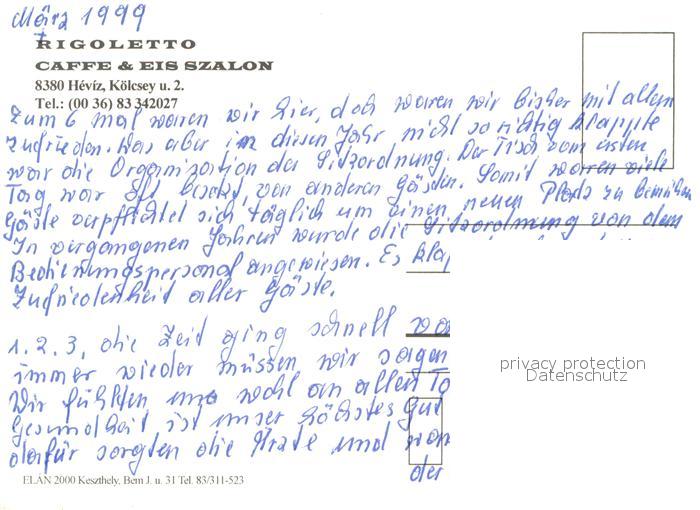 März 1999
RIGOLETTO
CAFFE & EIS SZALON
8380 Hévíz, Kölcsey u. 2.
Tel.: (00 36) 83 342027
Zum 6 mal waren wir hier, doch waren wir bisher mit allem
Zufrieden. Was aber im diesen Jahr nicht so richtig klappte
war die Organisation der Sitzordnung. Der Tisch vom ersten
Tag war oft besetzt, von anderen Gästen. Somit waren viele
Gäste verpflichtet sich täglich um einen neuen Platz zu bemühen
In vergangenen Jahren wurde die Sitzordnung von dem
Bedienungspersonal angewiesen. Es klap
Zufriedenheit aller Gäste.
1. 2. 3, die Zeit ging schnell
immer wieder müssen wir sagen
Wir fühlten uns wohl an allen
Gesundheit ist unser höchstes Gut
dafür sorgten die Ärzte und
der
privacy protection
Datenschutz
ELÁN 2000 Keszthely, Bem J. u. 31 Tel. 83/311-523